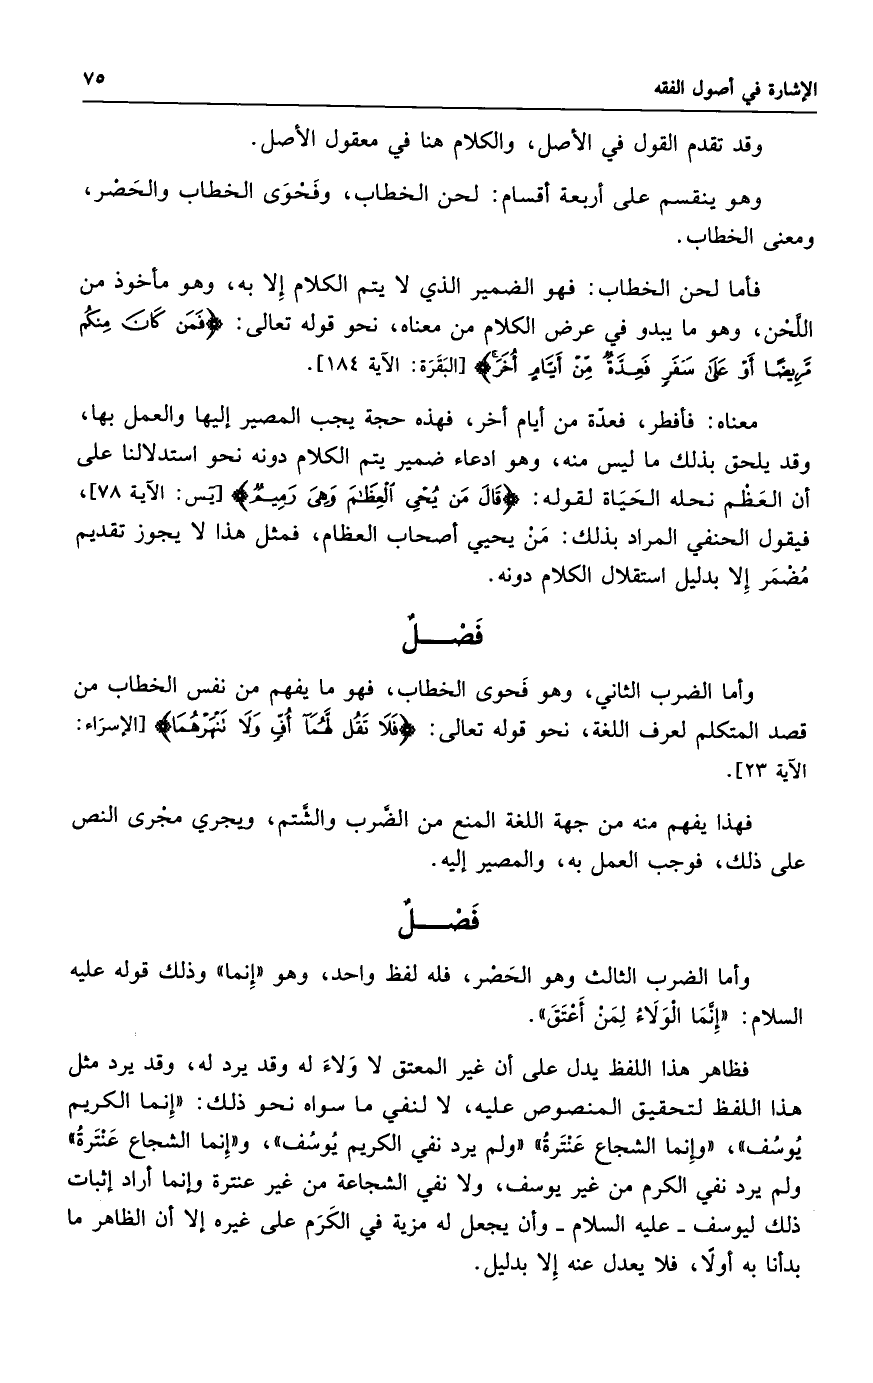 الإشارة في أصول الفقه
٧٥
وقد تقدم القول في الأصل، والكلام هنا في معقول الأصل.
وهو ينقسم على أربعة أقسام: لحن الخطاب، وفَحْوَى الخطاب والحَصْر،
ومعنى الخطاب.
فأما لحن الخطاب: فهو الضمير الذي لا يتم الكلام إلا به، وهو مأخوذ من
اللَّحْن، وهو ما يبدو في عرض الكلام من معناه، نحو قوله تعالى: ﴿فَمَن كَانَ مِنكُم
مَّرِيضًا أَوْ عَلَىٰ سَفَرٍ فَعِدَّةٌ مِّنْ أَيَّامٍ أُخَرَ﴾ [البَقَرَة: الآية ١٨٤].
معناه: فأفطر، فعدّة من أيام أخر، فهذه حجة يجب المصير إليها والعمل بها،
وقد يلحق بذلك ما ليس منه، وهو ادعاء ضمير يتم الكلام دونه نحو استدلالنا على
أن العَظْم نحله الحَيَاة لقوله: ﴿قَالَ مَن يُحْيِ ٱلْعِظَٰمَ وَهِيَ رَمِيمٌ﴾ [يَس: الآية ٧٨]،
فيقول الحنفي المراد بذلك: مَنْ يحيي أصحاب العظام، فمثل هذا لا يجوز تقديم
مُضْمَر إلا بدليل استقلال الكلام دونه.
فَصْــــلٌ
وأما الضرب الثاني، وهو فَحوى الخطاب، فهو ما يفهم من نفس الخطاب من
قصد المتكلم لعرف اللغة، نحو قوله تعالى: ﴿فَلَا تَقُل لَّهُمَآ أُفٍّ وَلَا نَنْهَرْهُمَا﴾ [الإسرَاء:
الآية ٢٣].
فهذا يفهم منه من جهة اللغة المنع من الضَّرب والشَّتم، ويجري مجْرى النص
على ذلك، فوجب العمل به، والمصير إليه.
فَصْــــلٌ
وأما الضرب الثالث وهو الحَصْر، فله لفظ واحد، وهو «إنما» وذلك قوله عليه
السلام: «إِنَّمَا الْوَلَاءُ لِمَنْ أَعْتَقَ».
فظاهر هذا اللفظ يدل على أن غير المعتق لا وَلاءَ له وقد يرد له، وقد يرد مثل
هذا اللفظ لتحقيق المنصوص عليه، لا لنفي ما سواه نحو ذلك: «إنما الكريم
يُوسُف»، «وإنما الشجاع عَنْتَرةُ» «ولم يرد نفي الكريم يُوسُف»، و«إنما الشجاع عَنْتَرةُ»
ولم يرد نفي الكرم من غير يوسف، ولا نفي الشجاعة من غير عنترة وإنما أراد إثبات
ذلك ليوسف ـ عليه السلام ـ وأن يجعل له مزية في الكَرَم على غيره إلا أن الظاهر ما
بدأنا به أولًا، فلا يعدل عنه إلا بدليل.